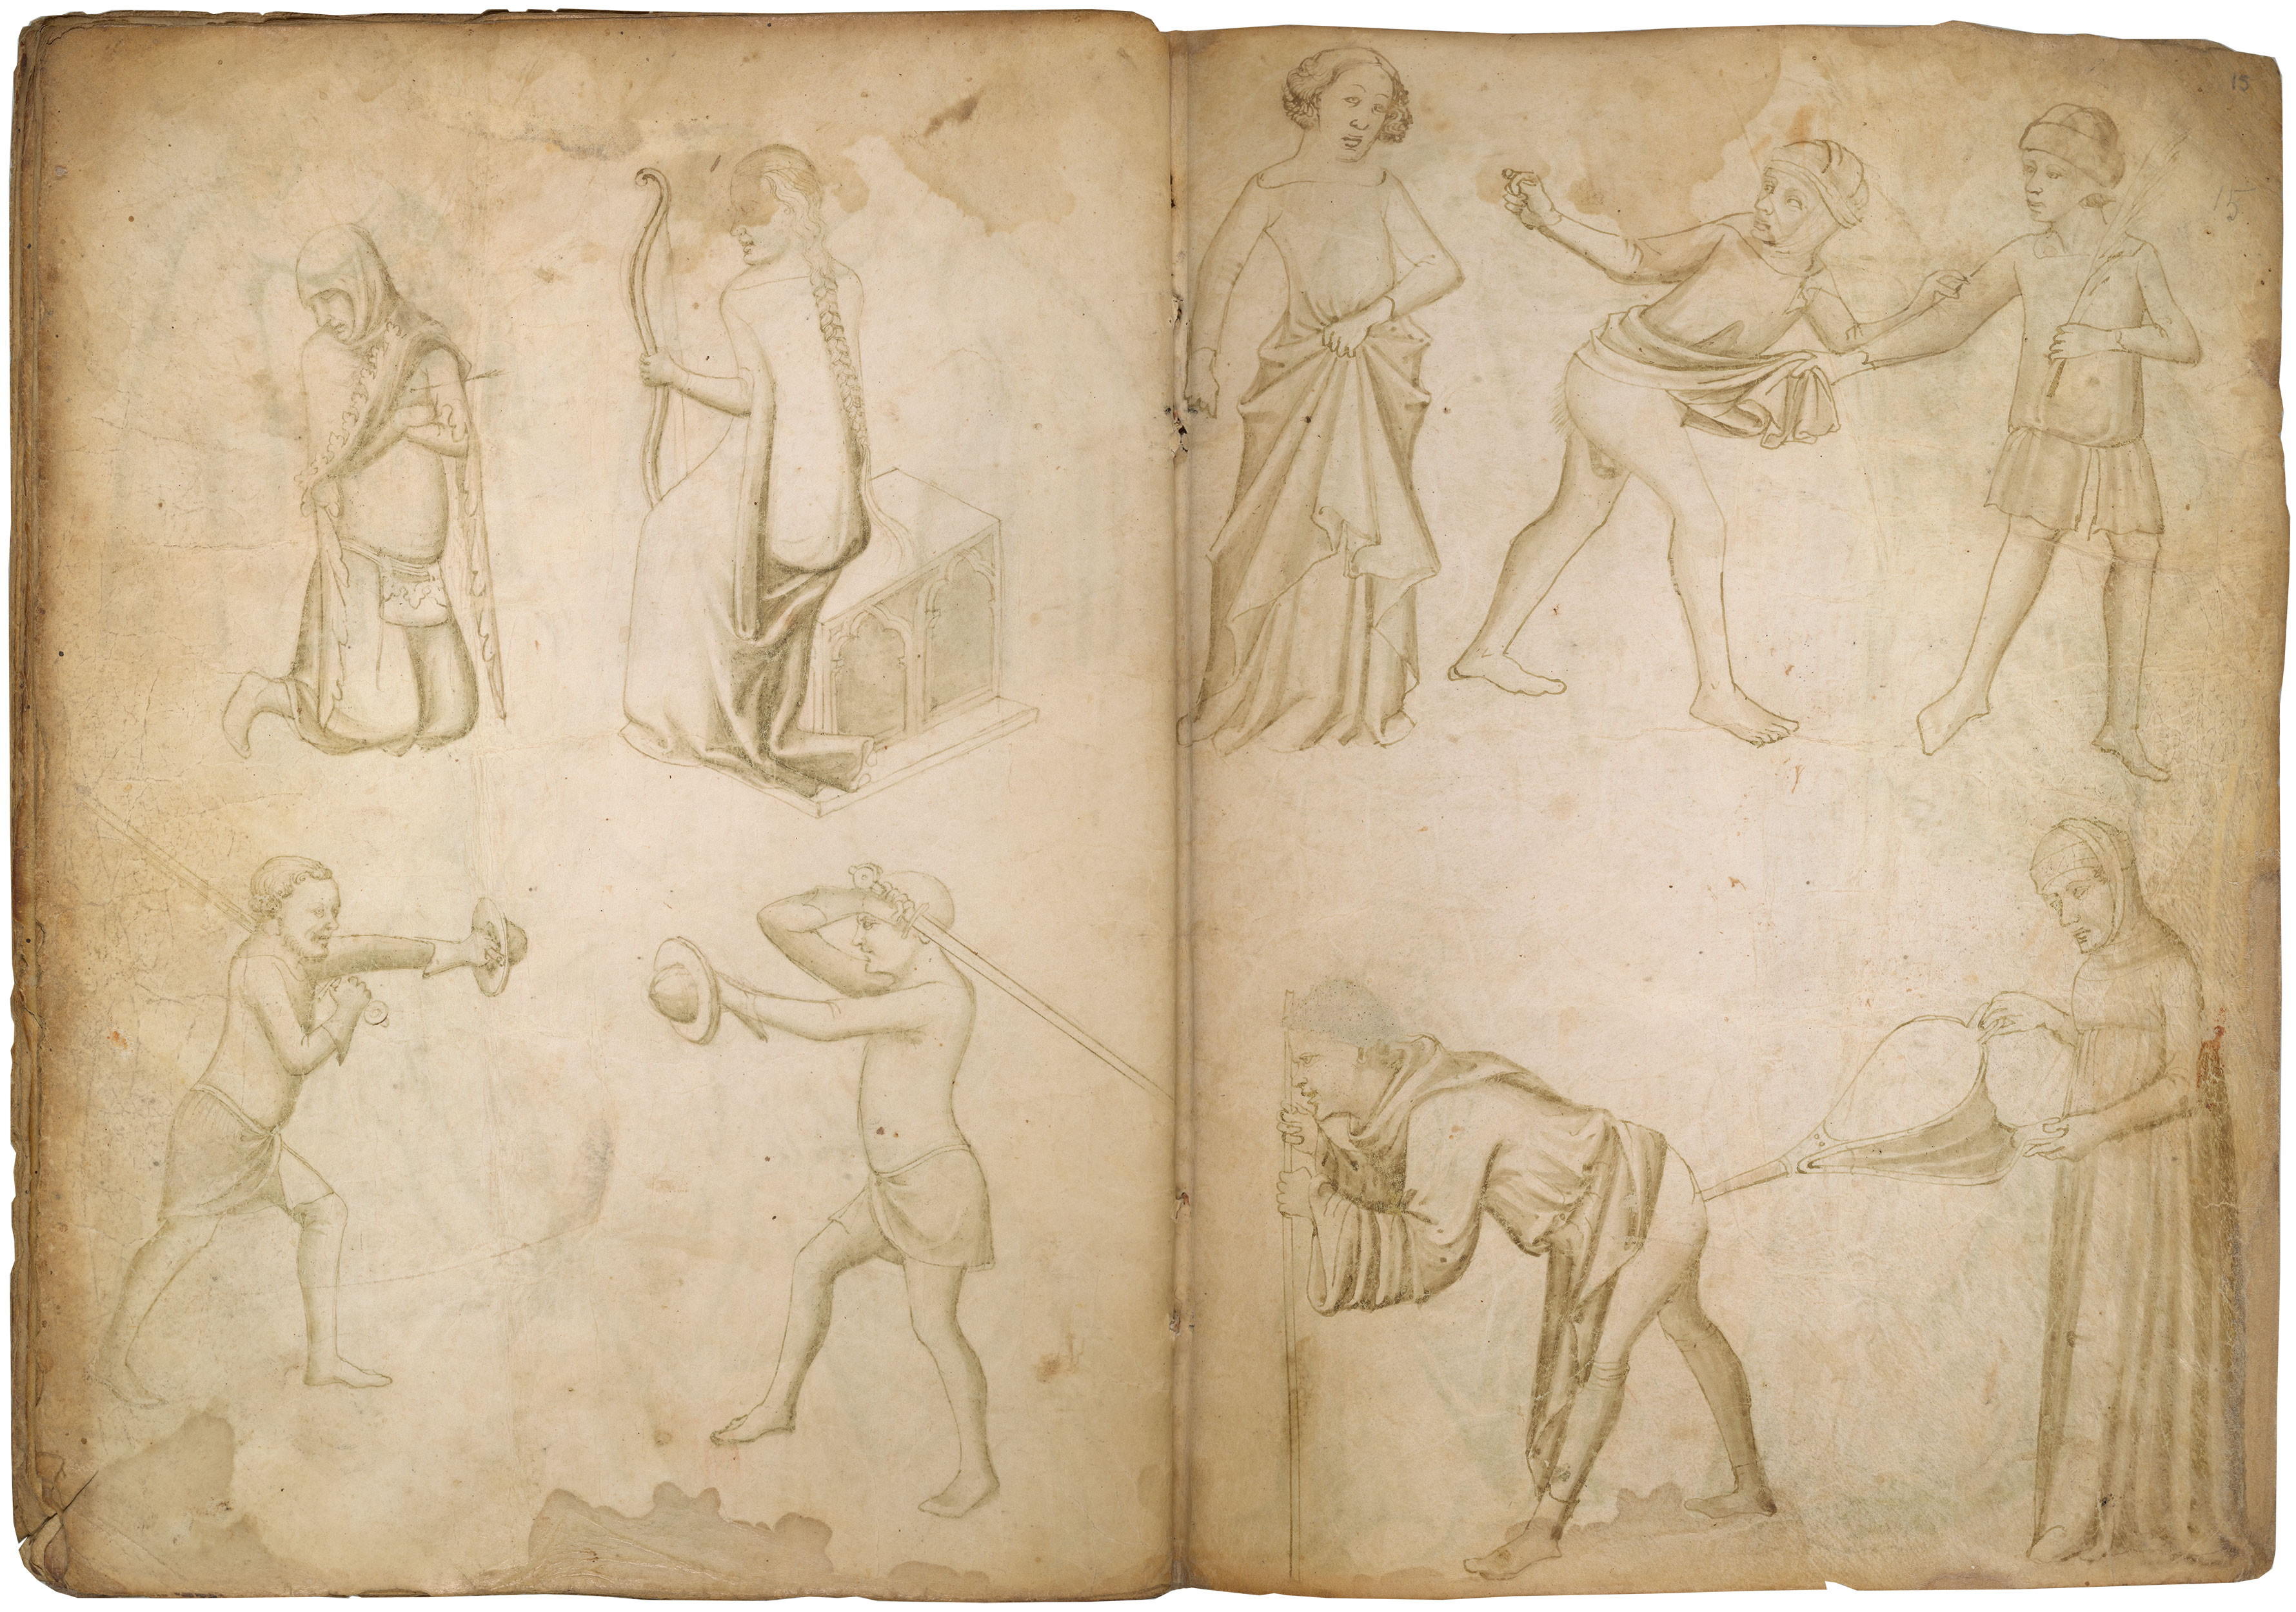 15
15